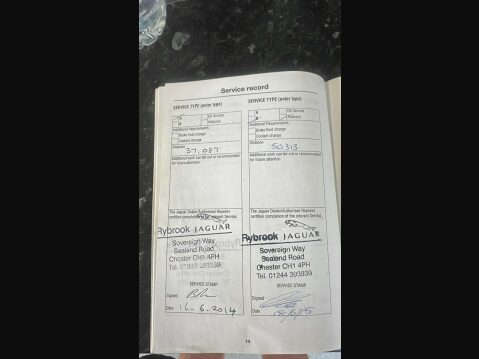 Service record
SERVICE TYPE (enter type)
A
B
Oil Service
Antivirus
Additional Requirements
Brake fluid change
Coolant change
Distance
37,087
Additional work carried out or recommended
for future attention:
The Jaguar Dealer/Authorised Repairer
certifies completion of the relevant Service.
Rybrook JAGUAR
Sovereign Way
Sealand Road
Chester CH1 4PH
Tel. 01244 393939
SERVICE STAMP
Signed
Date 16-6-2014
SERVICE TYPE (enter type)
A
B
Oil Service
Additional Requirements
Brake fluid change
Coolant change
Distance
50313
Additional work carried out or recommended
for future attention:
The Jaguar Dealer/Authorised Repairer
certifies completion of the relevant Service.
Rybrook JAGUAR
Sovereign Way
Sealand Road
Chester CH1 4PH
Tel. 01244 393939
SERVICE STAMP
Signed
Date